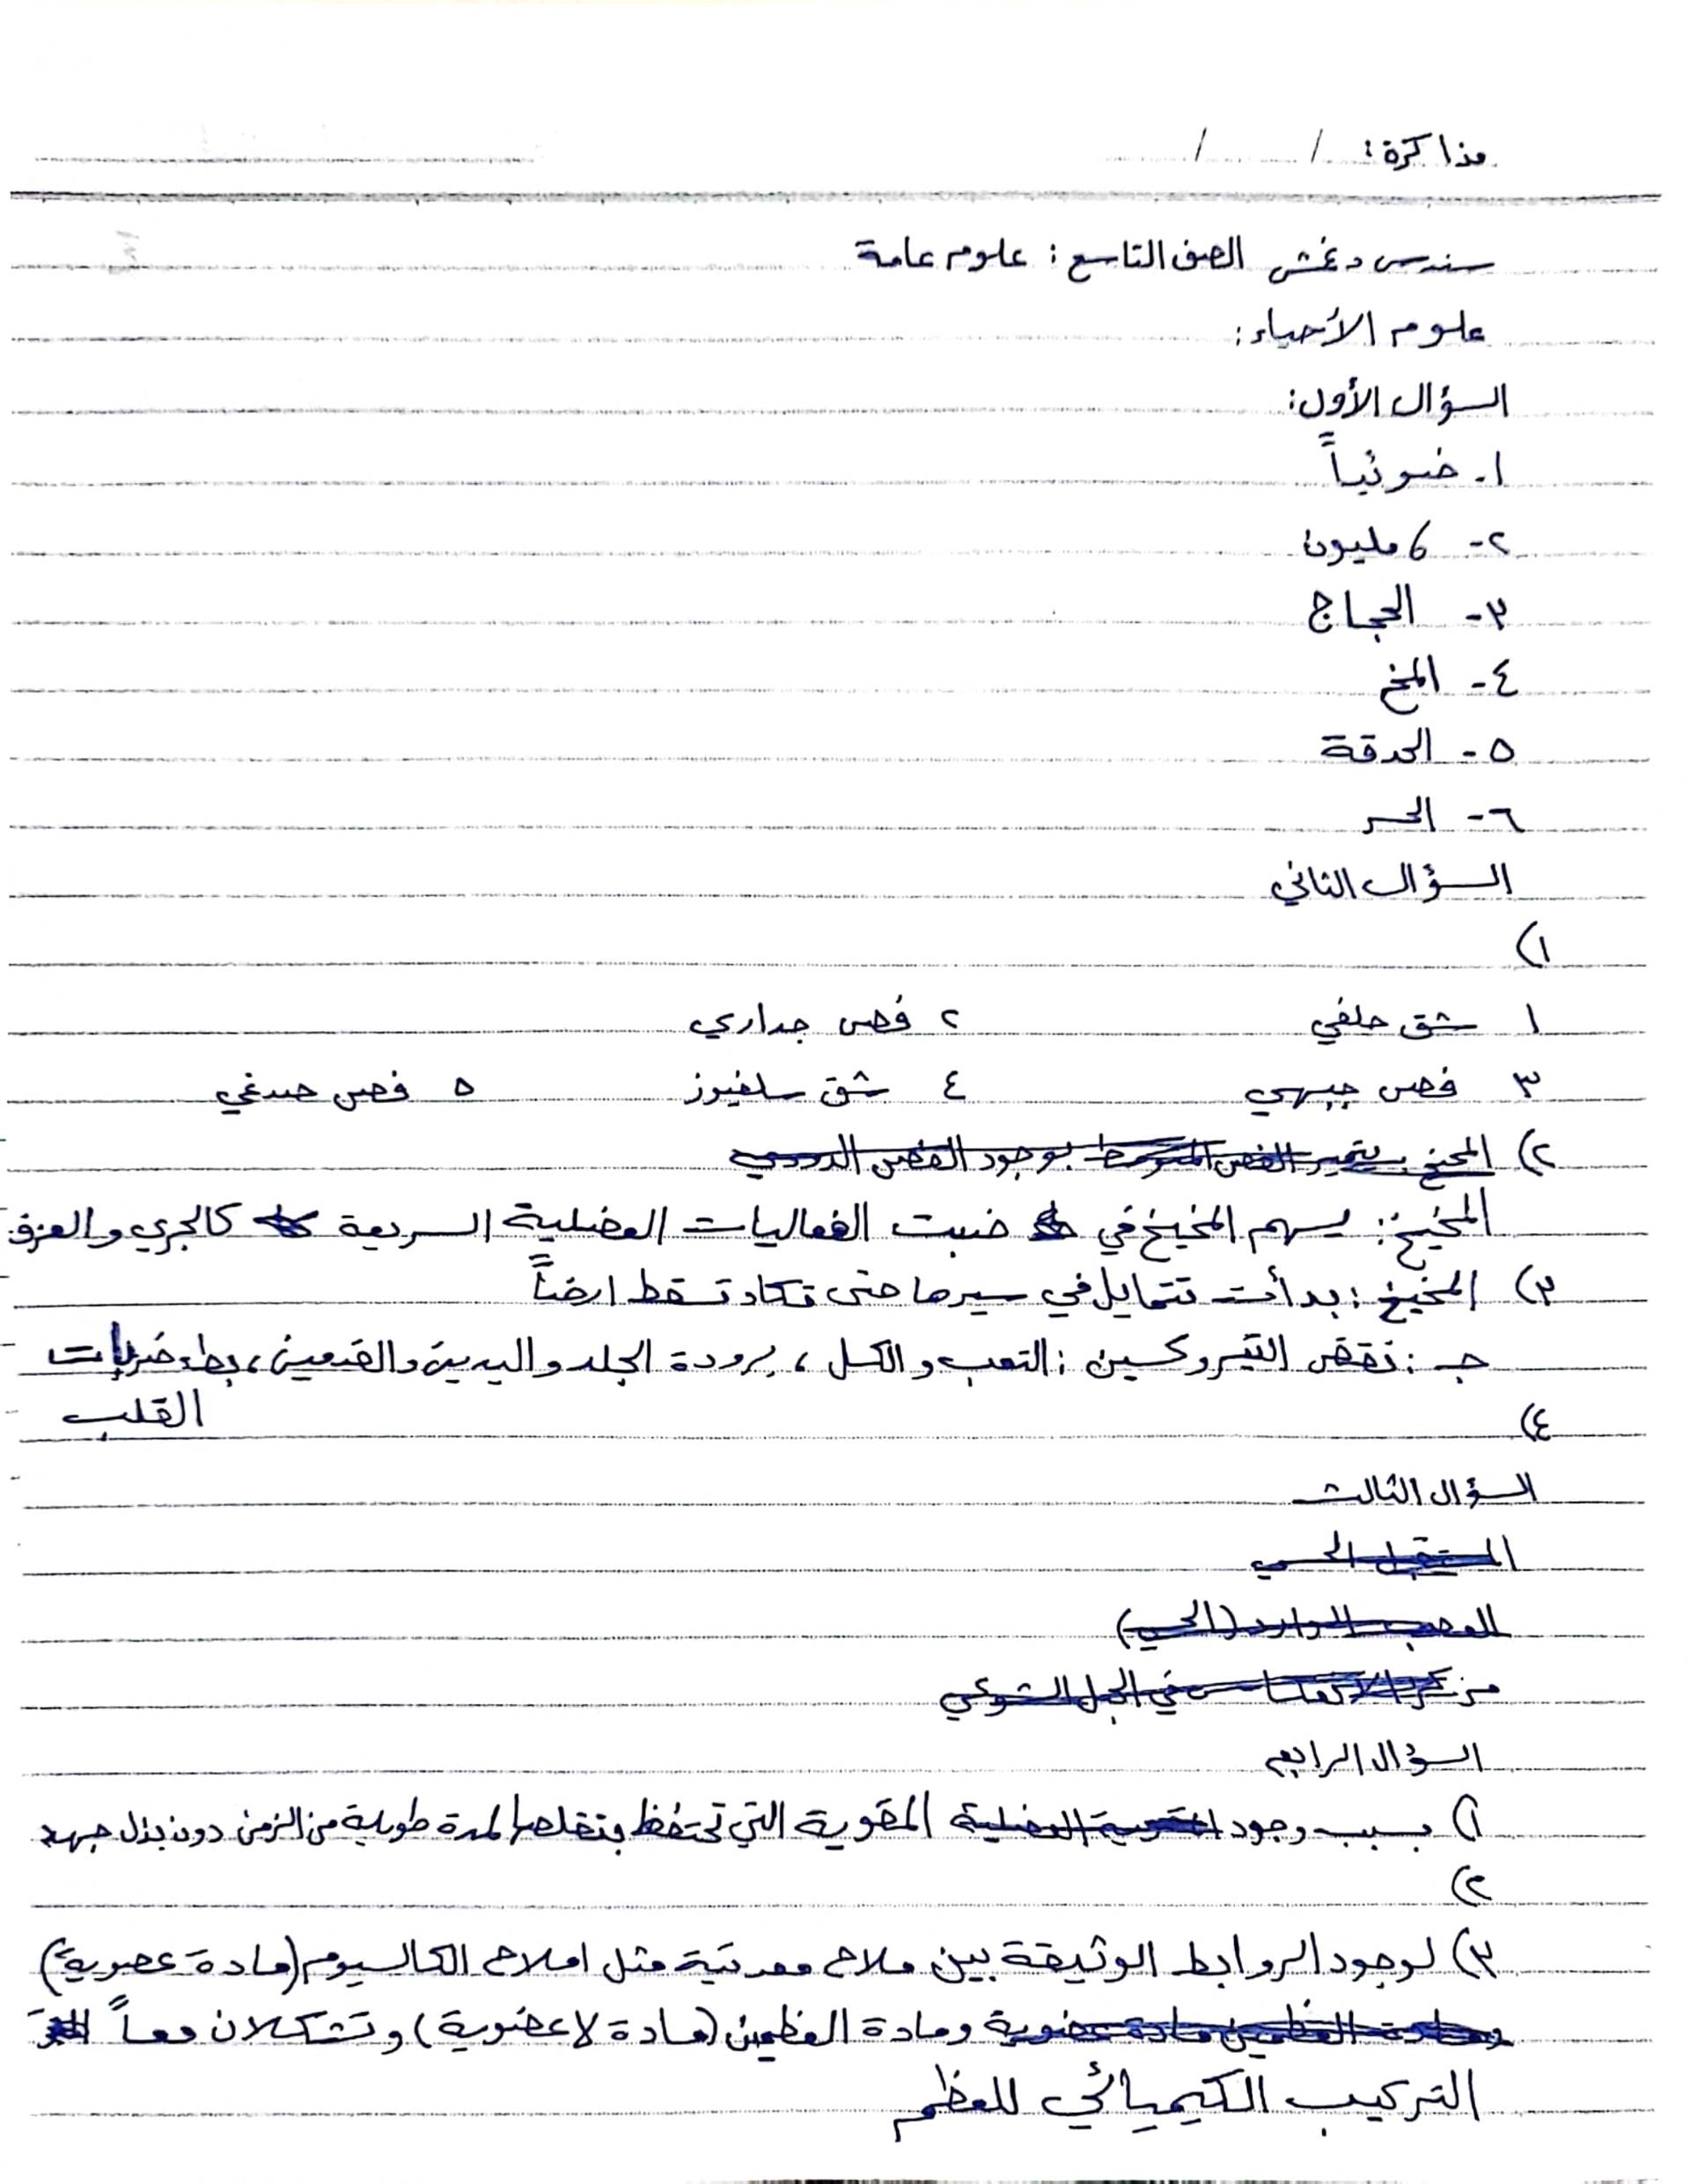 مذاكرة: / /
سندس دغمش الصف التاسع: علوم عامة
علوم الأحياء:
السؤال الأول:
١- ضوئياً
٢- 6 مليون
٣- الحجاج
٤- المخ
٥- الحدقة
٦- الحس
السؤال الثاني
١)
١ شق خلفي ٢ فص جداري
٣ فص جبهي ٤ شق سلفيوز ٥ فص صدغي
٢) المخيخ يتميز الفص المتوسط بوجود الفص الدودي
المخيخ: يسهم المخيخ في ضبت الفعاليات العضلية السريعة كالجري والعزف
٣) المخيخ: بدأت تتمايل في سيرها حتى تكاد تسقط ارضاً
جـ: نقص التيروكسين: التعب والكسل، برودة الجلد واليدين والقدمين، بطء ضربات
القلب
٤)
السؤال الثالث
المستقبل الحسي
العصب الوارد (الحسي)
مركز الانعكاس في الحبل الشوكي
السؤال الرابع
١) بسبب وجود المقوية التي تحتفظ بتقلصها لمدة طويلة من الزمن دون بذل جهد
٢)
٣) لوجود الروابط الوثيقة بين ملاح معدنية مثل املاح الكالسيوم (مادة عضوية)
ومادة العظمين مادة عضوية ومادة العظمين (مادة لا عضوية) وتشكلان معاً
التركيب الكيميائي للعظم